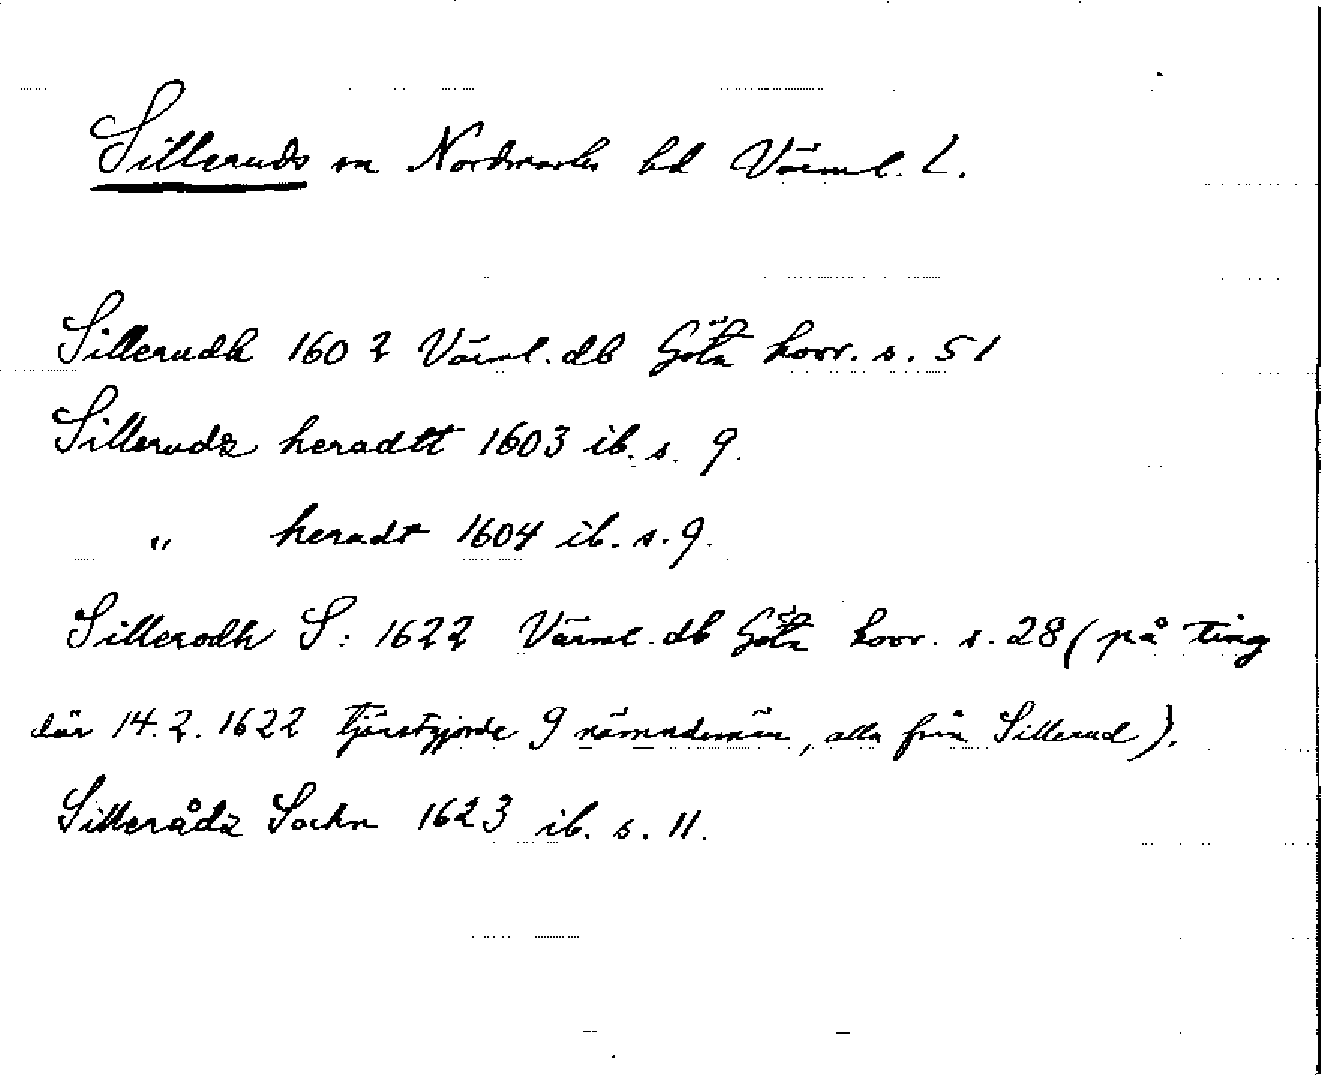 Silleruds sn Nordmarks hd Värml. L.
Sillerudh 1602 Värml. db Göta hovr. s. 51
Sillerudz heradtt 1603 ib. s. 9.
" heradt 1604 ib. s. 9.
Sillerodh S: 1622 Värml. db Göta hovr. s. 28 (på ting
där 14.2.1622 tjänstgjorde 9 nämndemän, alla från Sillerud).
Sillerådz Sochn 1623 ib. s. 11.